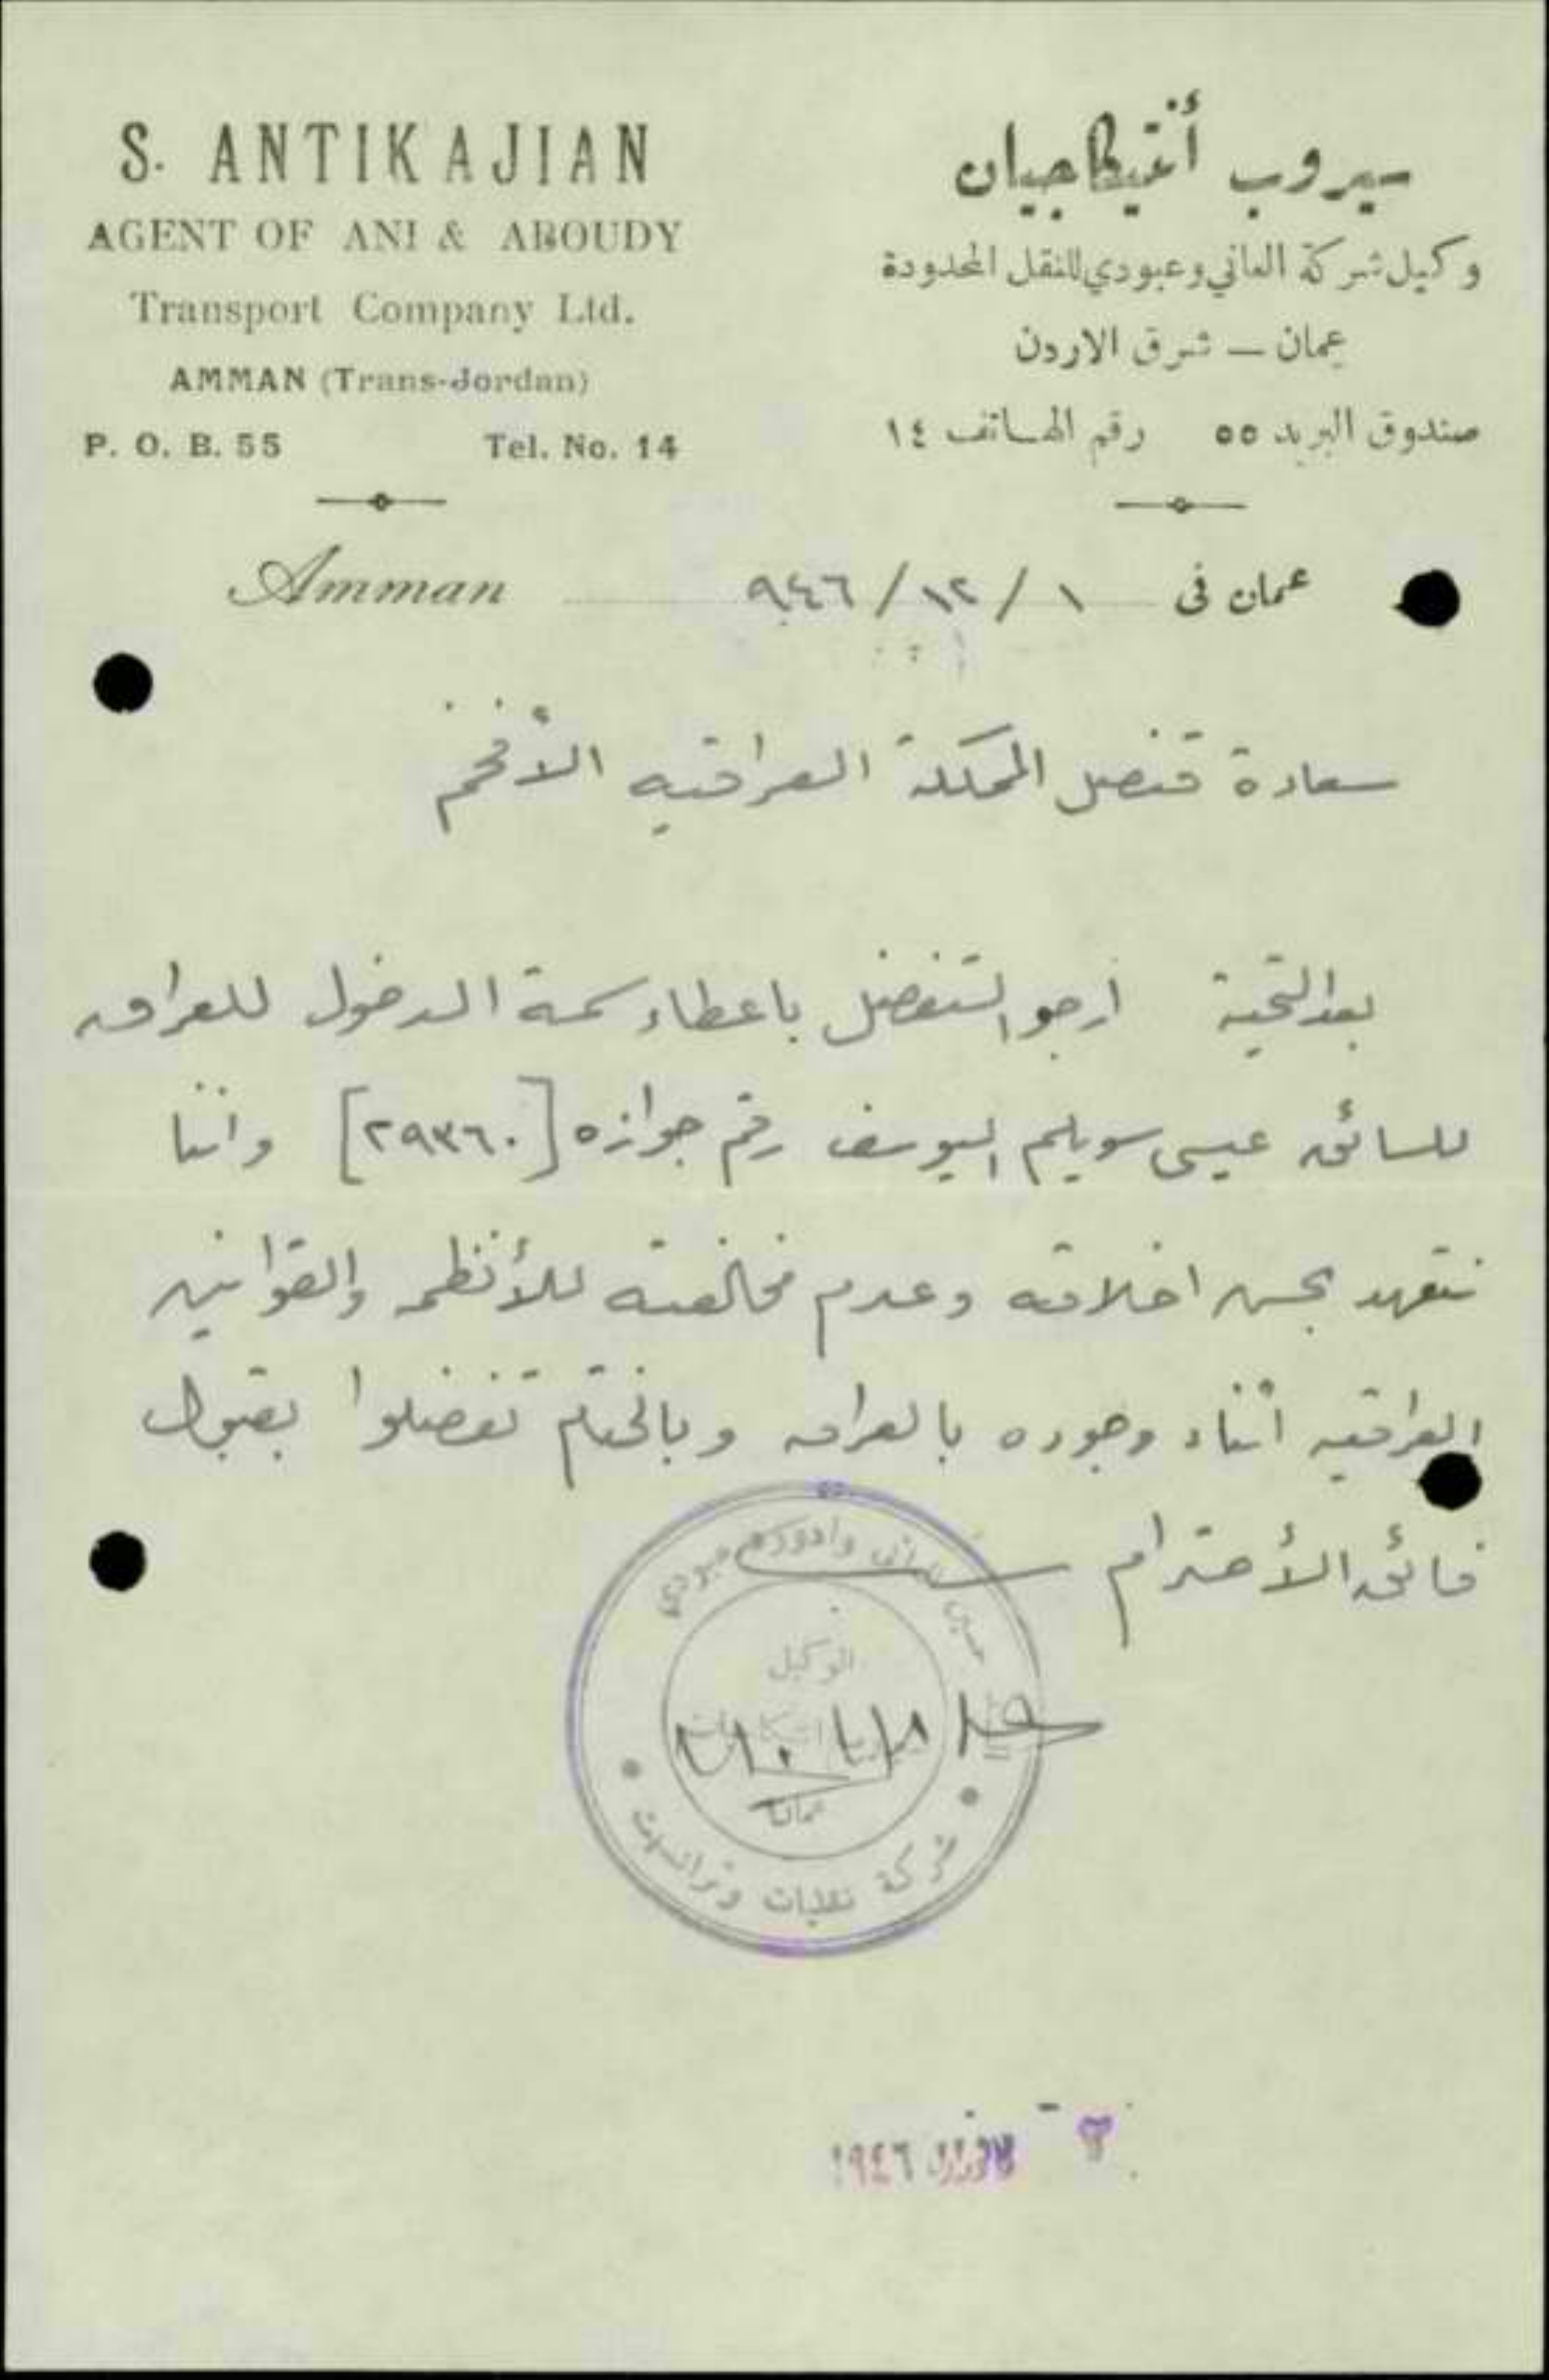 S. ANTIKAJIAN
AGENT OF ANI & ABOUDY
Transport Company Ltd.
AMMAN (Trans-Jordan)
P. O. B. 55 Tel. No. 14
سيروب أنتيكاجيان
وكيل شركة العاني وعبودي للنقل المحدودة
عمان — شرق الاردن
صندوق البريد ٥٥ رقم الهاتف ١٤
Amman
عمان في ١ / ١٢ / ٩٤٦
سعادة قنصل المملكة العراقيه الأفخم
بعد التحية أرجو التفضل باعطاء سمة الدخول للعراق
للسائق عيسى سويلم اليوسف رقم جوازه [٢٩٣٦٠] واننا
نتعهد بحسن اخلاقه وعدم مخالفته للأنظمه والقوانين
العراقيه أثناء وجوده بالعراق وبالختام تفضلوا بقبول
فائق الأحترام
حسين العاني وادور عبودي
الوكيل
عمان
شركة نقليات وترانسيت
١٩٤٦